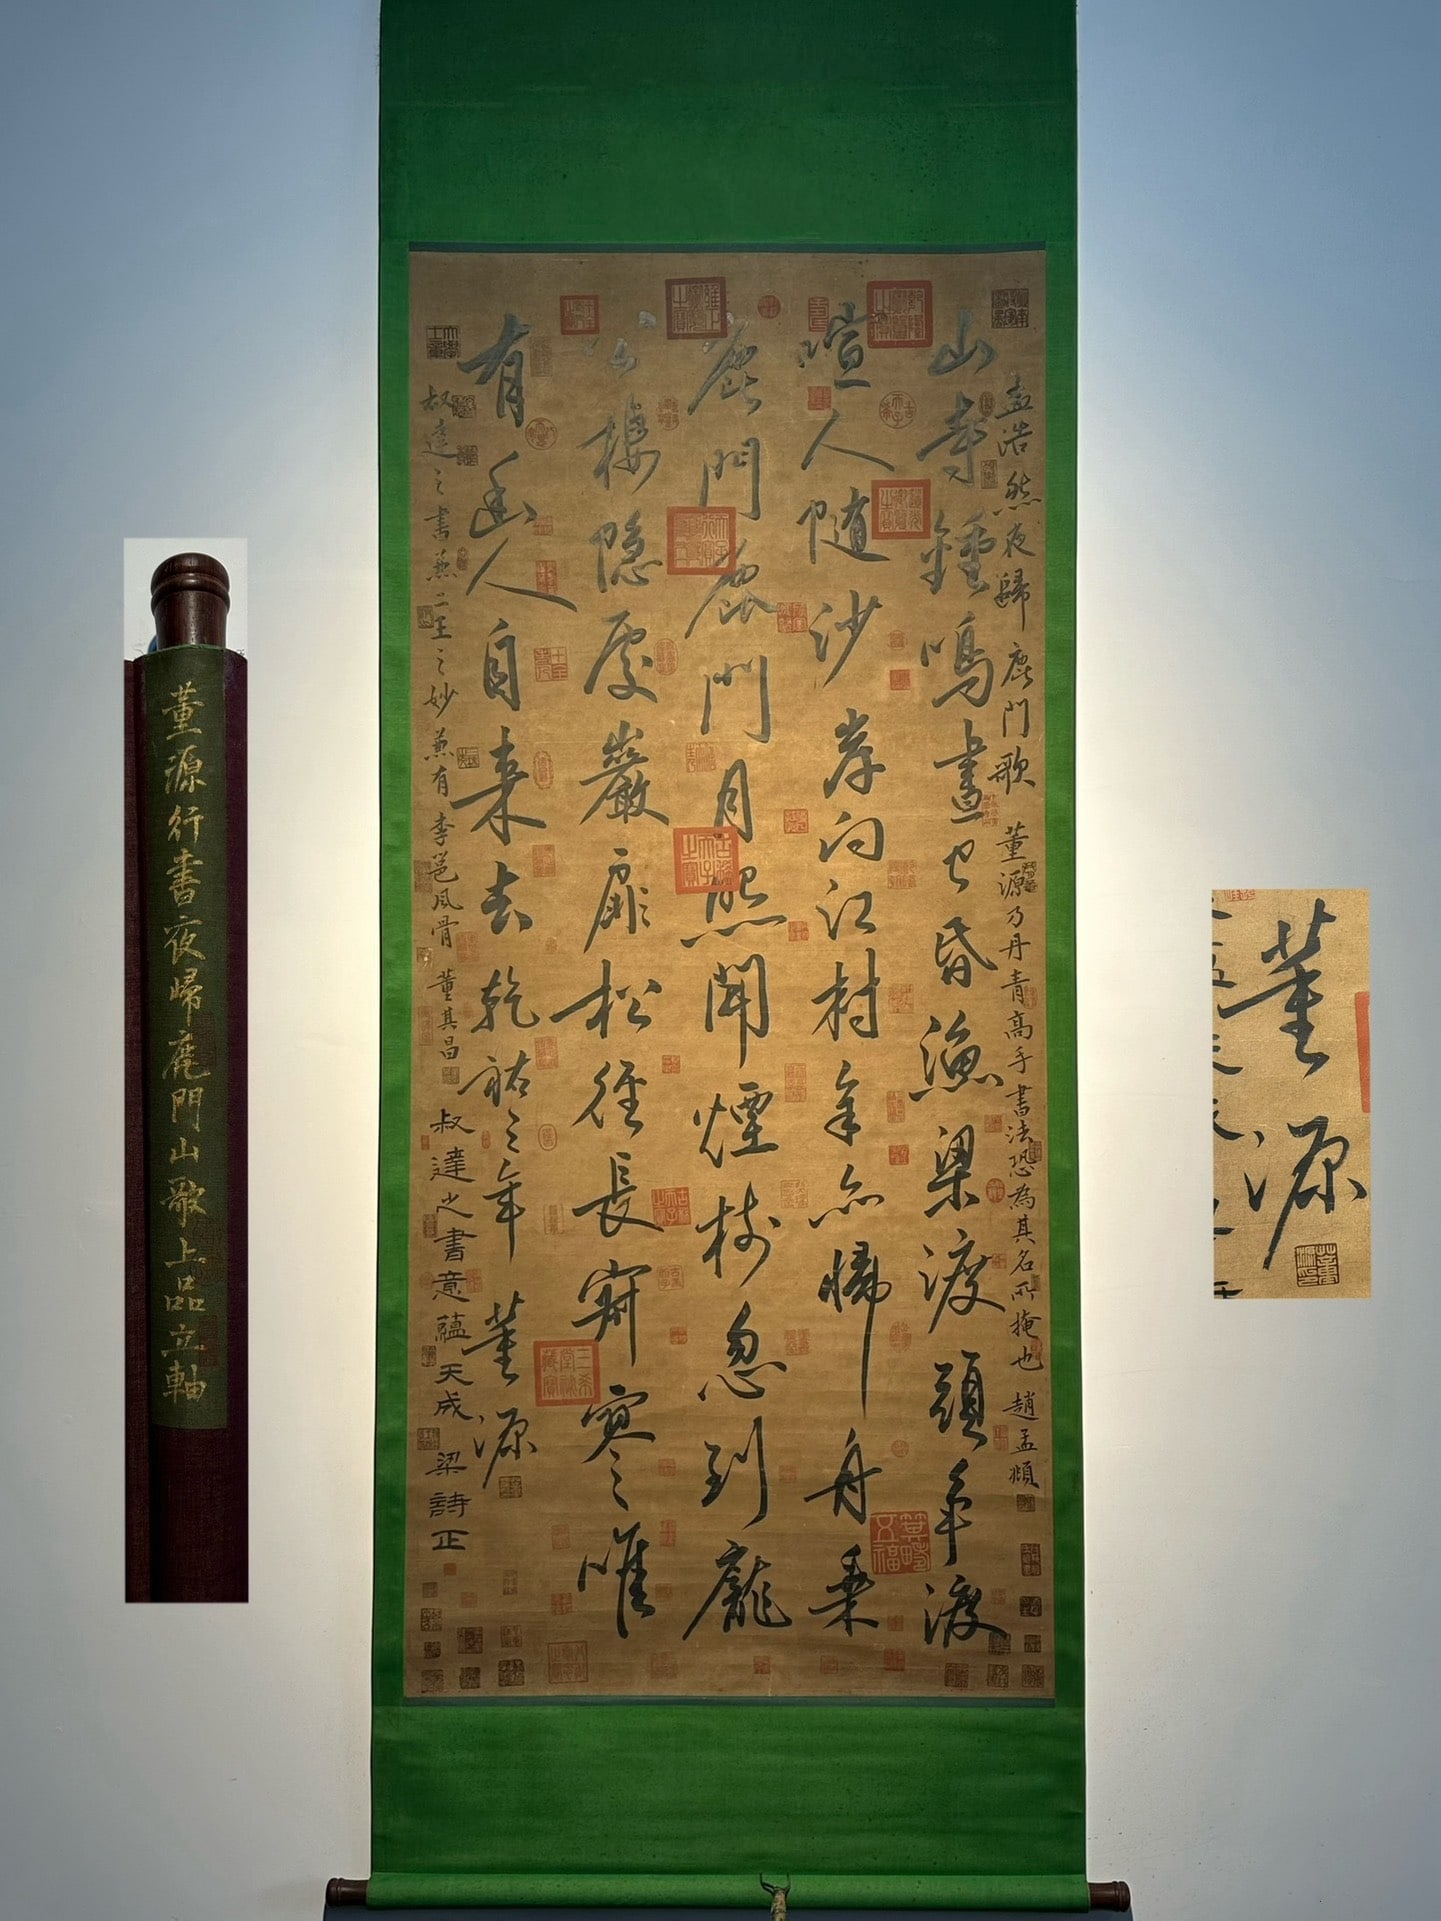 孟浩然夜歸鹿門歌 董源乃丹青高手書法恐為其名所掩也 趙孟頫
山寺鍾鳴晝已昏漁梁渡頭爭渡
喧人随沙岸向江村余亦歸舟乘
鹿門鹿門月照開煙樹忽到龐
公棲隱處巖扉松徑長寂寥唯
有幽人自来去乾祐三年 董源
叔達之書兼二王之妙兼有李邕風骨 董其昌
叔達之書意蘊天成 梁詩正
董源行書夜歸鹿門山歌上品立軸
董源